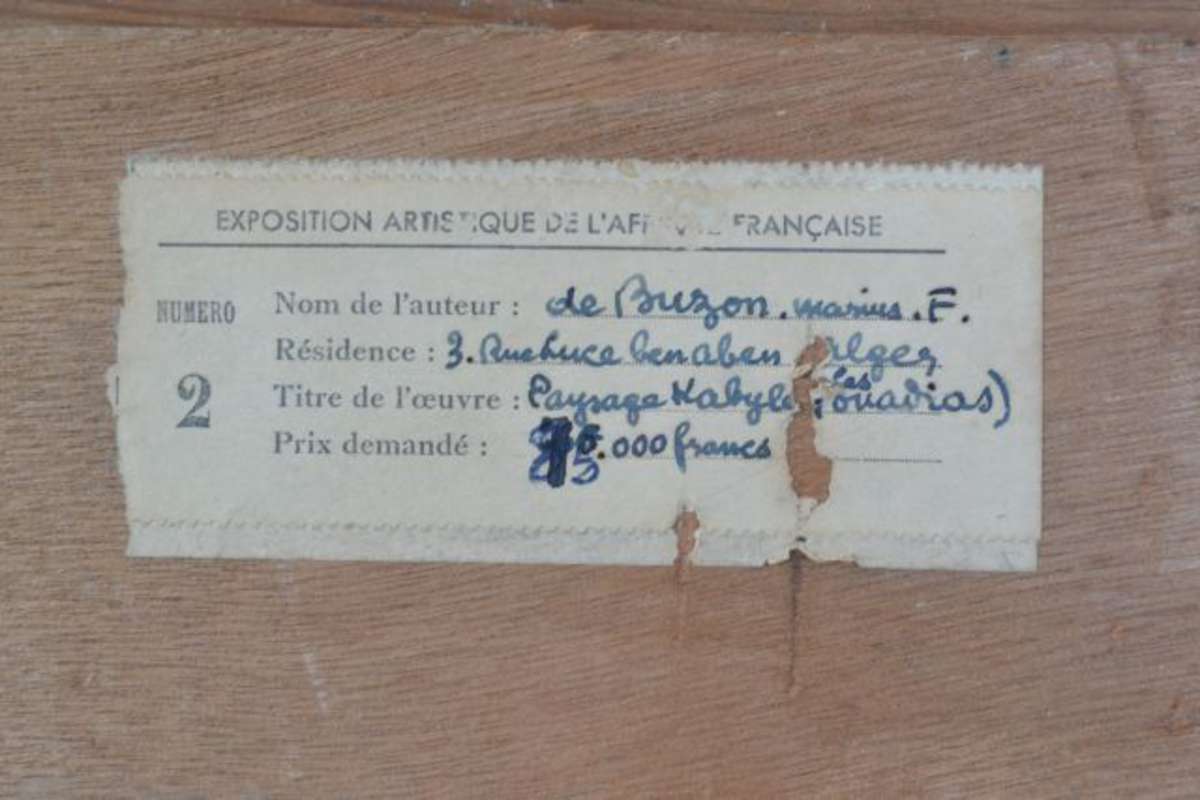 EXPOSITION ARTISTIQUE DE L'AFRIQUE FRANÇAISE
NUMERO
2
Nom de l'auteur : de Buzon. marius. F.
Résidence : 3. Rue Luce ben aben Alger
Titre de l'œuvre : Paysage Kabyle (les ouadias)
Prix demandé : .000 francs